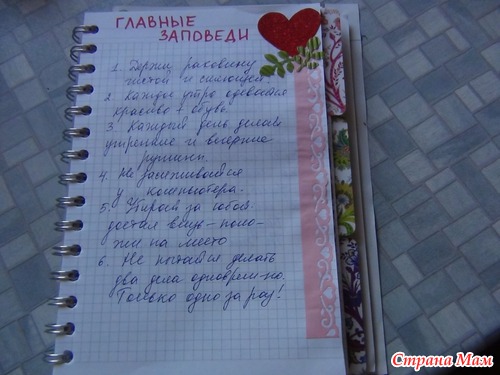 ГЛАВНЫЕ
ЗАПОВЕДИ
1. Держи раковину
чистой и сияющей.
2. Каждое утро одеваться
красиво + обувь
3. Каждый день делай
утренние и вечерние
рутины.
4. Не засиживайся
у компьютера.
5. Убирай за собой
достал вещь – поло-
жи на место
6. Не пытайся делать
два дела одноврем-но.
Только одно за раз!
Страна Мам